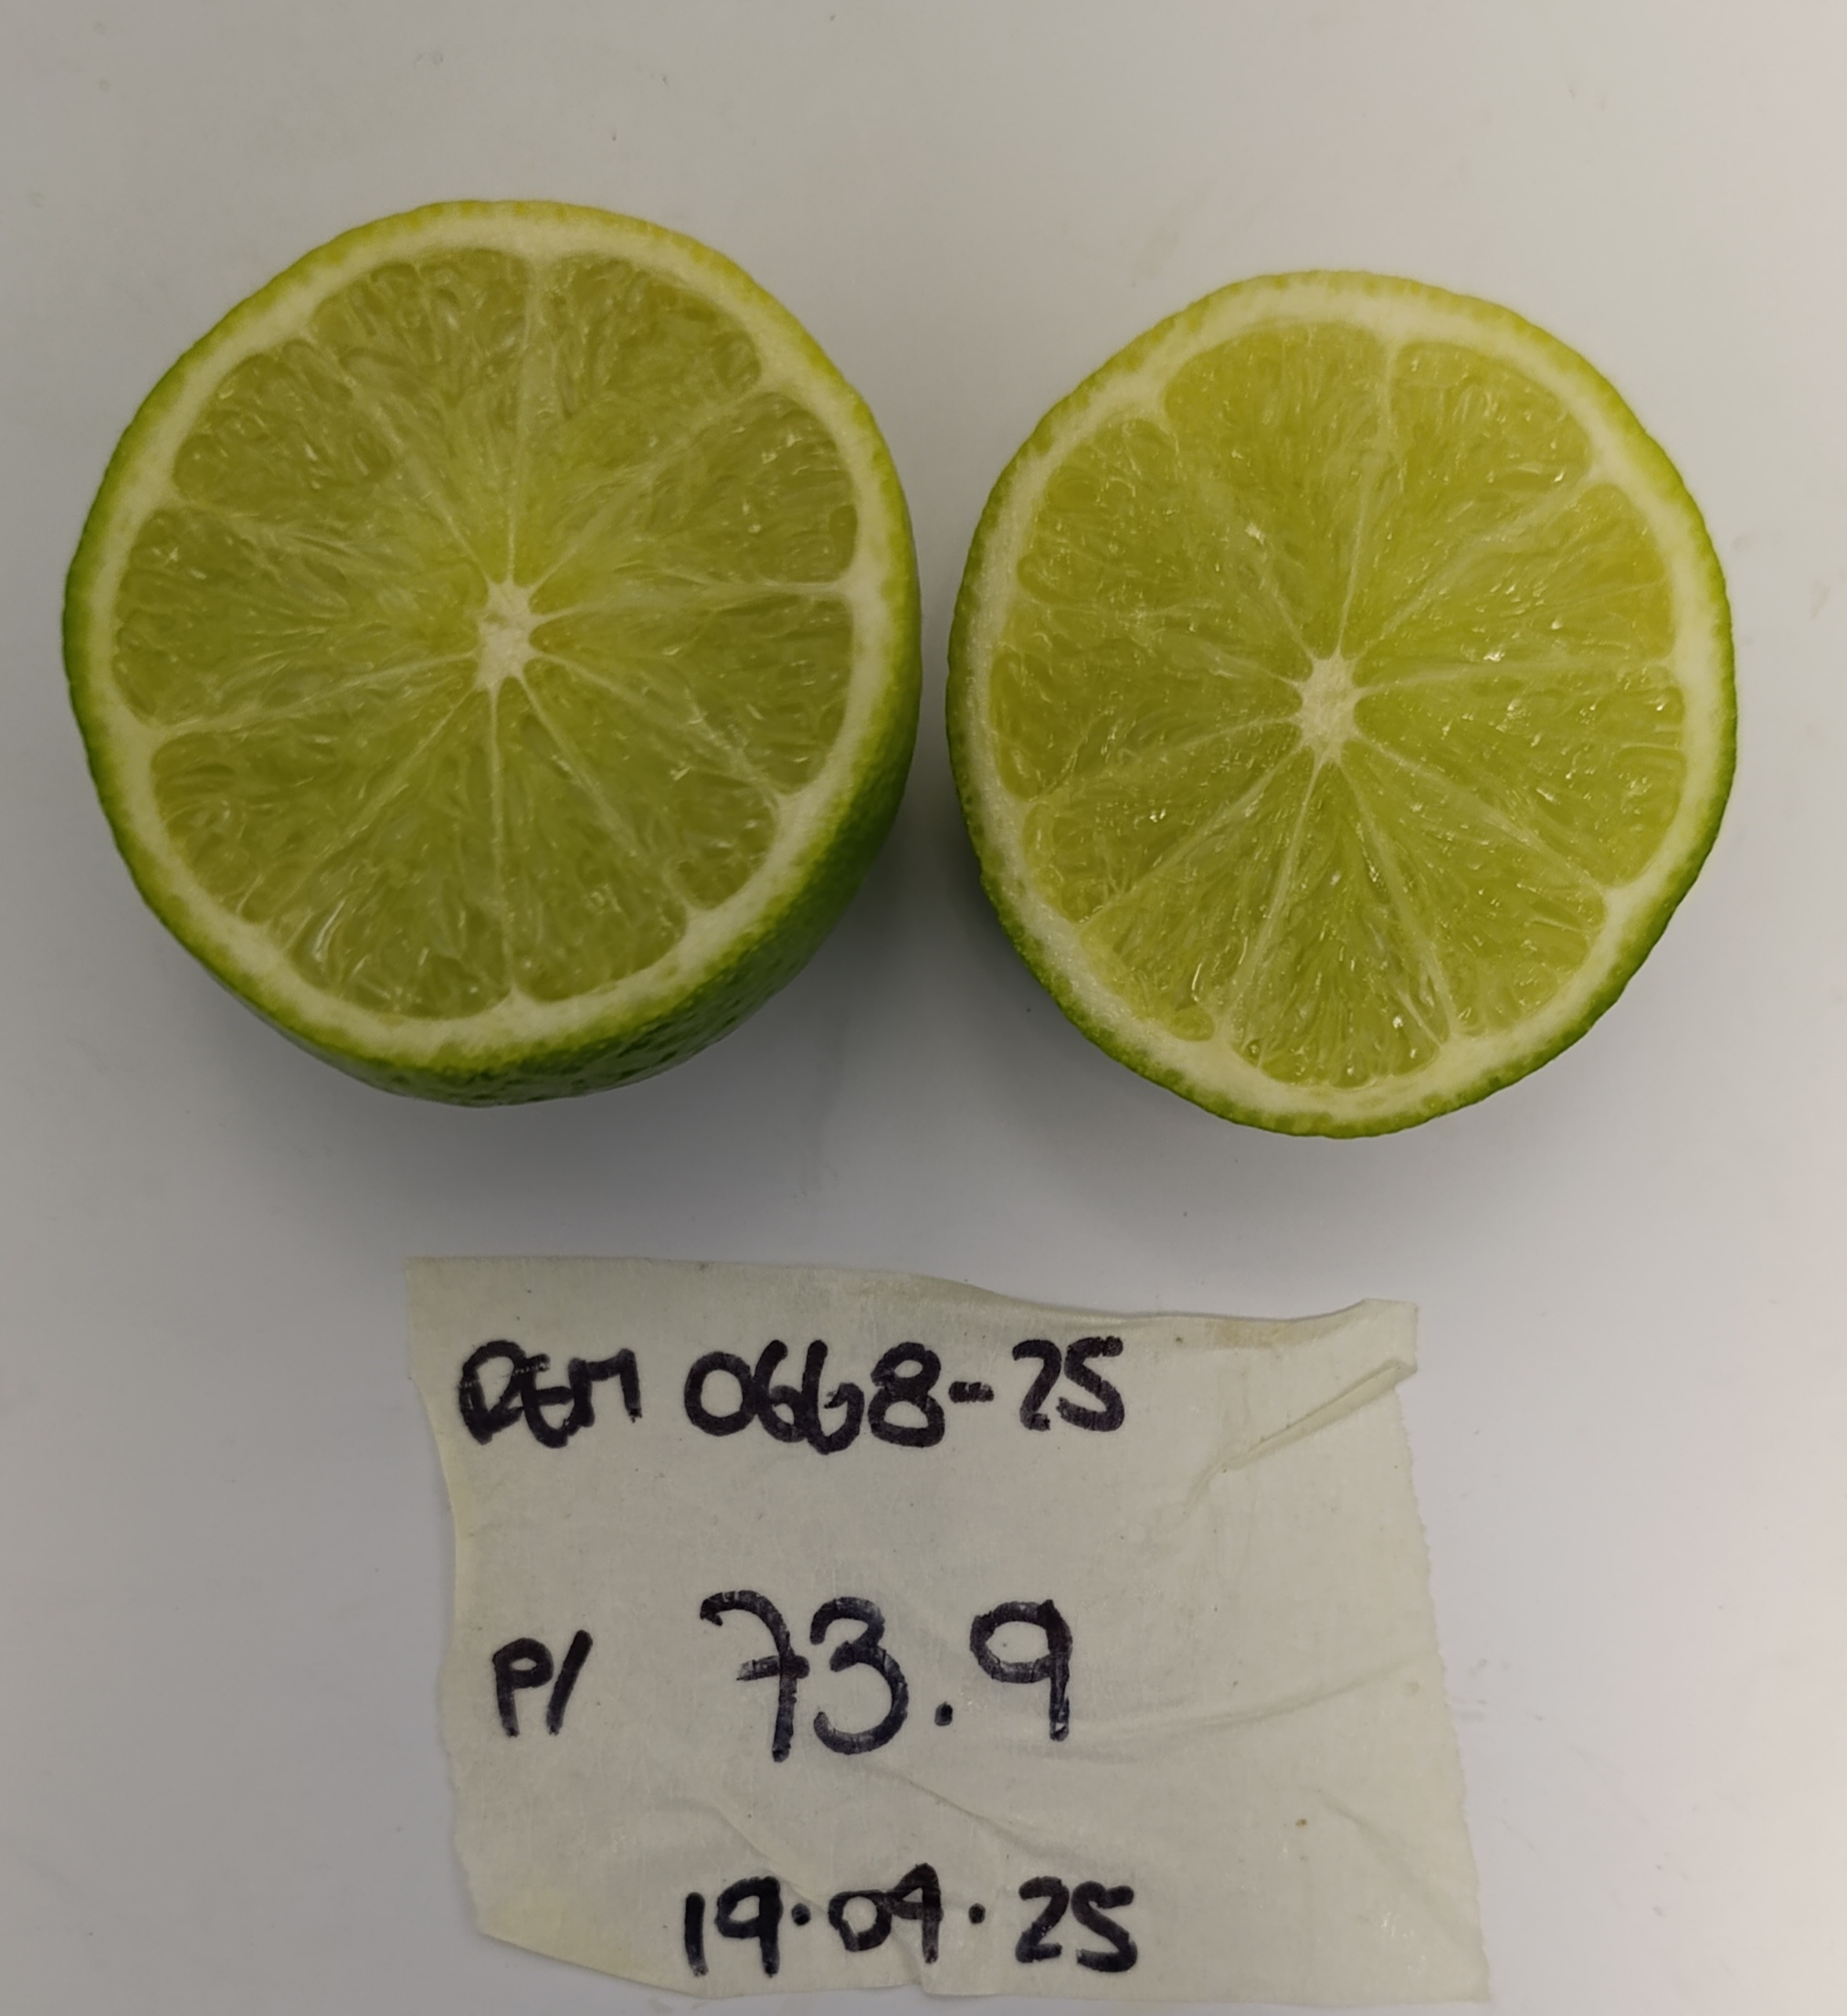 REM 0668-25
P/ 73.9
19.09.25